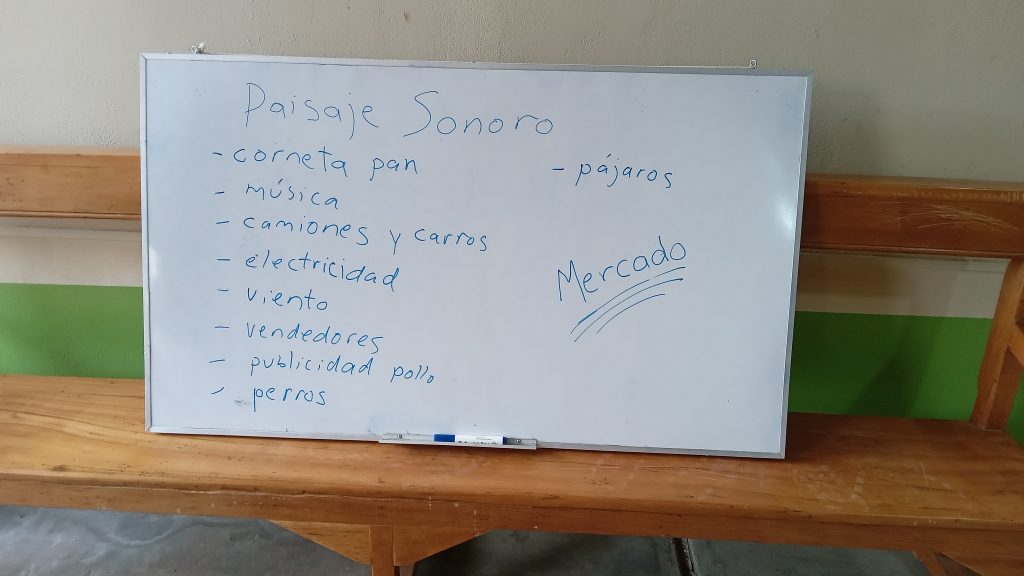 Paisaje Sonoro
- corneta pan
- música
- camiones y carros
- electricidad
- viento
- vendedores
- publicidad pollo
- perros
- pájaros
Mercado